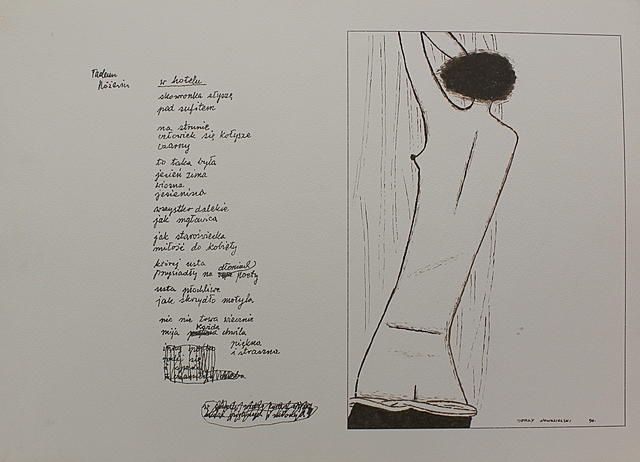 Tadeusz
Różewicz
w hotelu
skowronka słyszę
pod sufitem
na strunie
człowiek się kołysze
czarny
to taka była
jesień zima
wiosna
jesienina
wszystko dalekie
jak mgławica
jak staroświecka
miłość do kobiety
której usta
przysiadły na dłoniach poety
usta płochliwe
jak skrzydło motyla
nic nie trwa wiecznie
mija każda chwila
piękna
i straszna
JERZY NOWOSIELSKI 90.